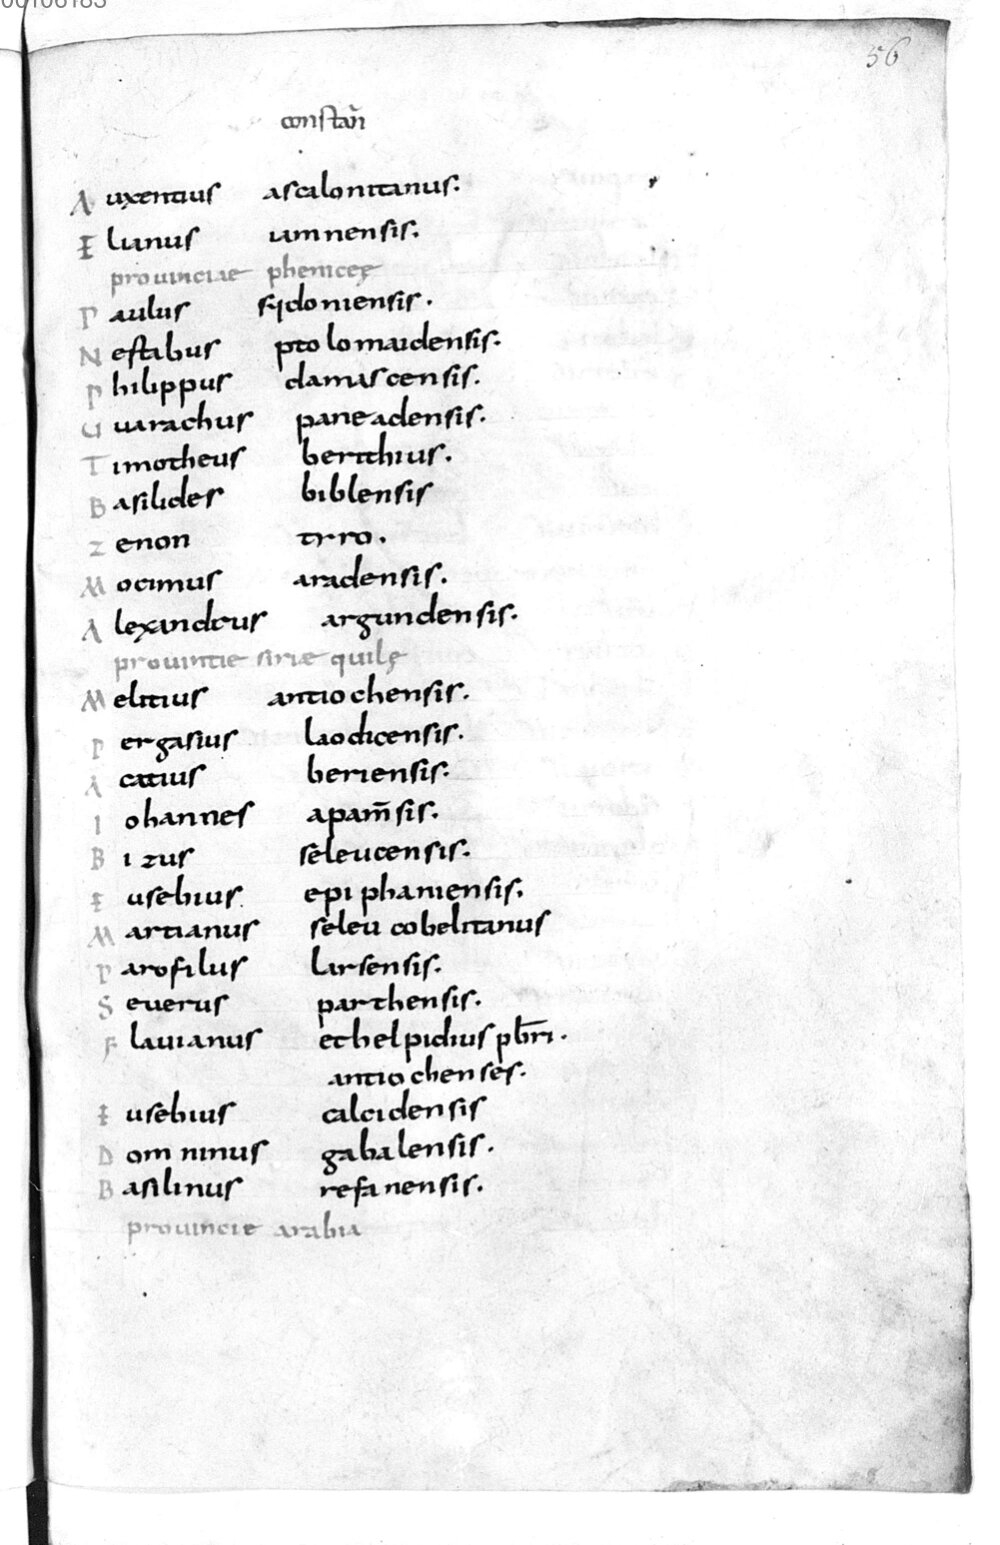 56
constañ
Auxentius ascalonitanus.
Elianus iamnensis.
prouinciae phenicę
Paulus sydoniensis.
Nestabus ptolomaidensis.
Philippus damascensis.
Uuarachus paneadensis.
Timotheus berithius.
Basilides biblensis
Zenon tyro.
Mocimus aradensis.
Alexandrus argundensis.
prouintie sirie quilę
Melitius antiochensis.
Pergasius laodicensis.
Acatius beriensis.
Iohannes apam̄sis.
Bizus seleucensis.
Eusebius epiphaniensis.
Martianus seleucobelitanus
Parofilus larsensis.
Seuerus parthensis.
Flauianus ethelpidius pb̄ri.
antiochenses.
Eusebius calcidensis
Domninus gabalensis.
Basilinus refanensis.
prouincie arabia